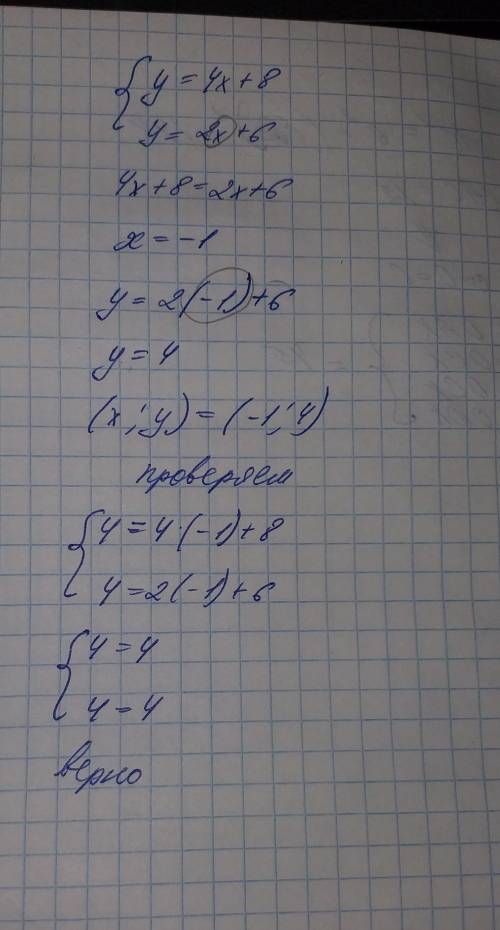 { y = 4x + 8
y = 2x + 6
4x + 8 = 2x + 6
x = -1
y = 2(-1) + 6
y = 4
(x; y) = (-1; 4)
проверяем
{ 4 = 4·(-1) + 8
4 = 2(-1) + 6
{ 4 = 4
4 = 4
верно